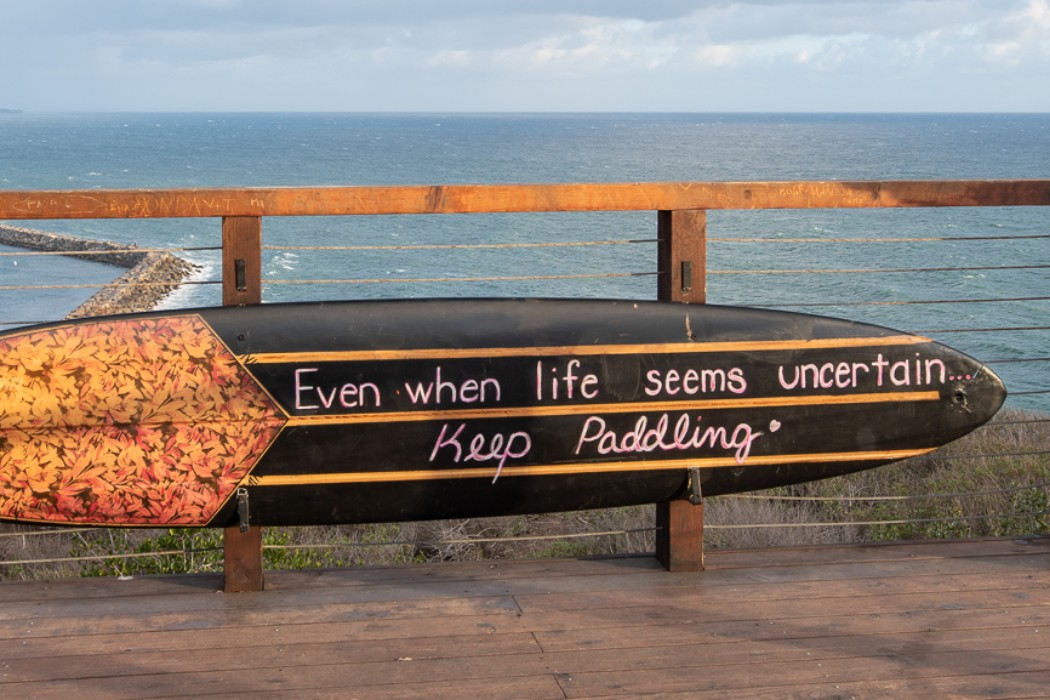 Even when life seems uncertain...
Keep Paddling